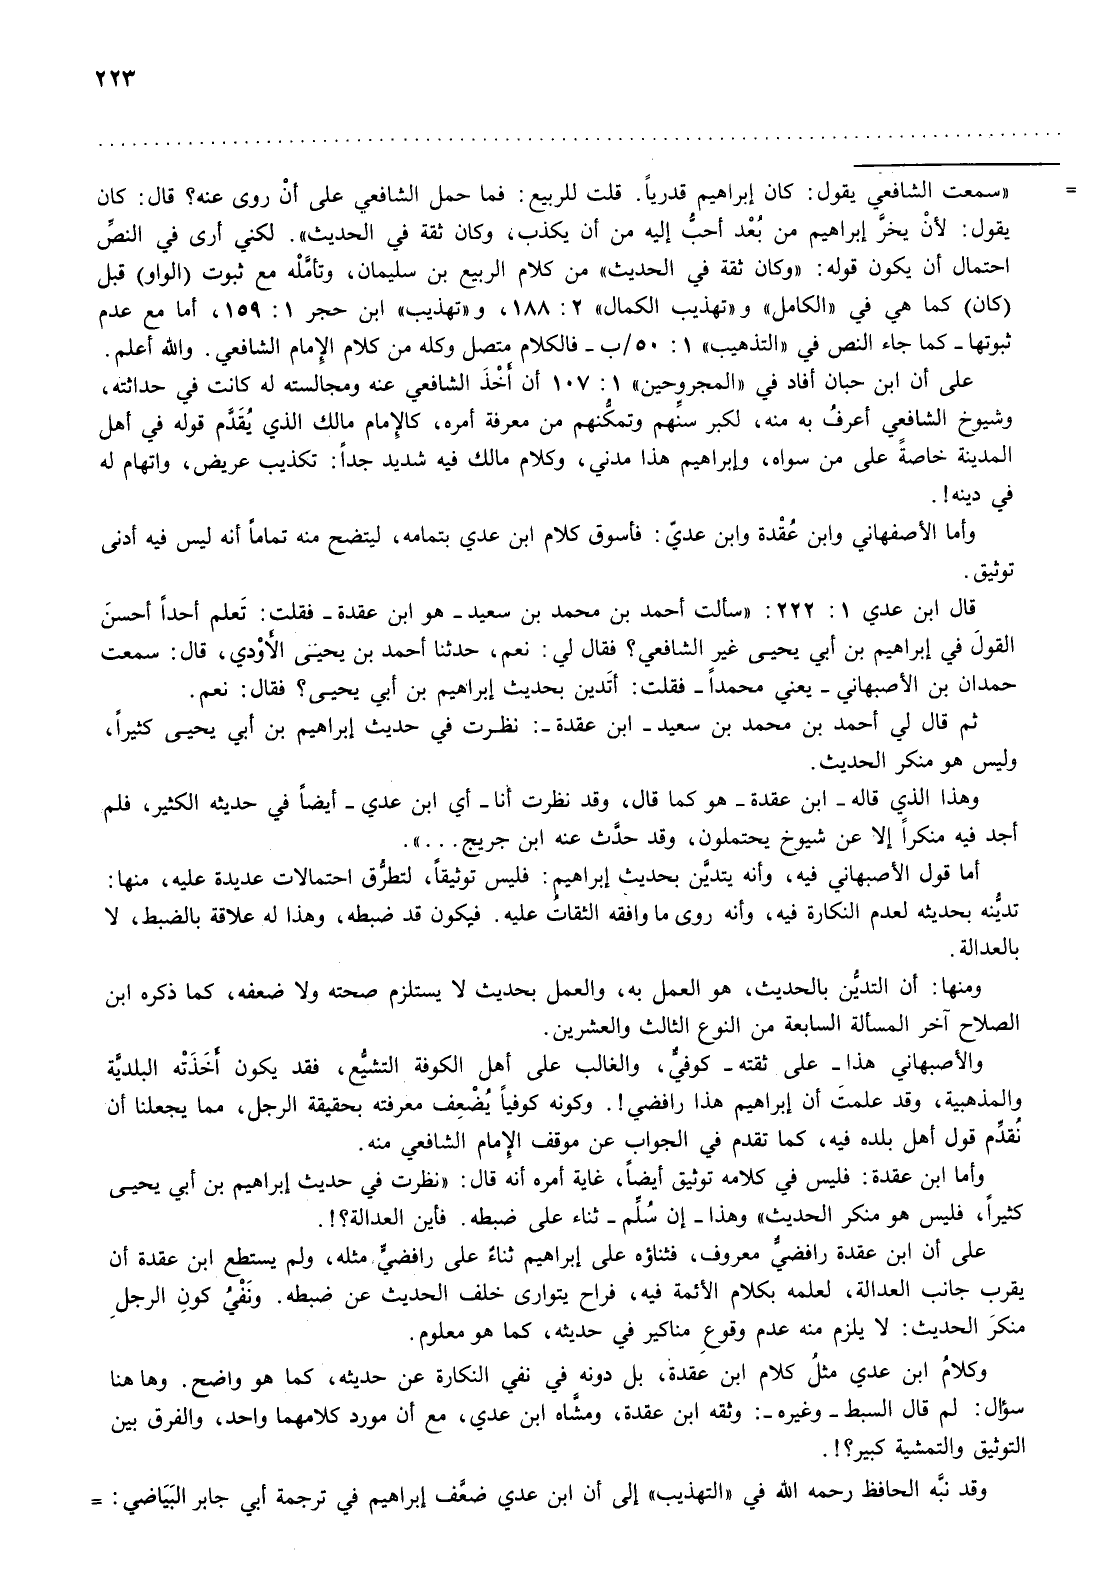 ٢٢٣
= «سمعت الشافعي يقول: كان إبراهيم قدرياً. قلت للربيع: فما حمل الشافعي على أنْ روى عنه؟ قال: كان
يقول: لأنْ يخرَّ إبراهيم من بُعْد أحبُّ إليه من أن يكذب، وكان ثقة في الحديث». لكني أرى في النصِّ
احتمال أن يكون قوله: «وكان ثقة في الحديث» من كلام الربيع بن سليمان، وتأمَّلْه مع ثبوت (الواو) قبل
(كان) كما هي في «الكامل» و«تهذيب الكمال» ٢: ١٨٨، و«تهذيب» ابن حجر ١: ١٥٩، أما مع عدم
ثبوتها ـ كما جاء النص في «التذهيب» ١: ٥٠/ب ـ فالكلام متصل وكله من كلام الإمام الشافعي. والله أعلم.
على أن ابن حبان أفاد في «المجروحين» ١: ١٠٧ أن أَخْذَ الشافعي عنه ومجالسته له كانت في حداثته،
وشيوخ الشافعي أعرفُ به منه، لكبر سنِّهم وتمكُّنهم من معرفة أمره، كالإمام مالك الذي يُقَدَّم قوله في أهل
المدينة خاصةً على من سواه، وإبراهيم هذا مدني، وكلام مالك فيه شديد جداً: تكذيب عريض، واتهام له
في دينه!.
وأما الأصفهاني وابن عُقْدة وابن عديّ: فأسوق كلام ابن عدي بتمامه، ليتضح منه تماماً أنه ليس فيه أدنى
توثيق.
قال ابن عدي ١: ٢٢٢: «سألت أحمد بن محمد بن سعيد ـ هو ابن عقدة ـ فقلت: تَعلم أحداً أحسنَ
القولَ في إبراهيم بن أبي يحيى غير الشافعي؟ فقال لي: نعم، حدثنا أحمد بن يحيى الأَوْدي، قال: سمعت
حمدان بن الأصبهاني ـ يعني محمداً ـ فقلت: أتَدين بحديث إبراهيم بن أبي يحيى؟ فقال: نعم.
ثم قال لي أحمد بن محمد بن سعيد ـ ابن عقدة ـ: نظرت في حديث إبراهيم بن أبي يحيى كثيراً،
وليس هو منكر الحديث.
وهذا الذي قاله ـ ابن عقدة ـ هو كما قال، وقد نظرت أنا ـ أي ابن عدي ـ أيضاً في حديثه الكثير، فلم
أجد فيه منكراً إلا عن شيوخ يحتملون، وقد حدَّث عنه ابن جريج...».
أما قول الأصبهاني فيه، وأنه يتديَّن بحديث إبراهيم: فليس توثيقاً، لتطرُّق احتمالات عديدة عليه، منها:
تديُّنه بحديثه لعدم النكارة فيه، وأنه روى ما وافقه الثقاتُ عليه. فيكون قد ضبطه، وهذا له علاقة بالضبط، لا
بالعدالة.
ومنها: أن التديُّن بالحديث، هو العمل به، والعمل بحديث لا يستلزم صحته ولا ضعفه، كما ذكره ابن
الصلاح آخر المسألة السابعة من النوع الثالث والعشرين.
والأصبهاني هذا ـ على ثقته ـ كوفيٌّ، والغالب على أهل الكوفة التشيُّع، فقد يكون أَخَذَتْه البلديَّة
والمذهبية، وقد علمتَ أن إبراهيم هذا رافضي!. وكونه كوفياً يُضْعِف معرفته بحقيقة الرجل، مما يجعلنا أن
نُقدِّم قول أهل بلده فيه، كما تقدم في الجواب عن موقف الإمام الشافعي منه.
وأما ابن عقدة: فليس في كلامه توثيق أيضاً، غاية أمره أنه قال: «نظرت في حديث إبراهيم بن أبي يحيى
كثيراً، فليس هو منكر الحديث» وهذا ـ إن سُلِّم ـ ثناء على ضبطه. فأين العدالة؟!.
على أن ابن عقدة رافضيٌّ معروف، فثناؤه على إبراهيم ثناءً على رافضيٍّ مثله، ولم يستطع ابن عقدة أن
يقرب جانب العدالة، لعلمه بكلام الأئمة فيه، فراح يتوارى خلف الحديث عن ضبطه. ونَفْيُ كونِ الرجلِ
منكرَ الحديث: لا يلزم منه عدم وقوعِ مناكير في حديثه، كما هو معلوم.
وكلامُ ابن عدي مثلُ كلام ابن عقدة، بل دونه في نفي النكارة عن حديثه، كما هو واضح. وها هنا
سؤال: لم قال السبط ـ وغيره ـ: وثقه ابن عقدة، ومشَّاه ابن عدي، مع أن مورد كلامهما واحد، والفرق بين
التوثيق والتمشية كبير؟!.
وقد نبَّه الحافظ رحمه الله في «التهذيب» إلى أن ابن عدي ضعَّف إبراهيم في ترجمة أبي جابر البَيَاضي: =